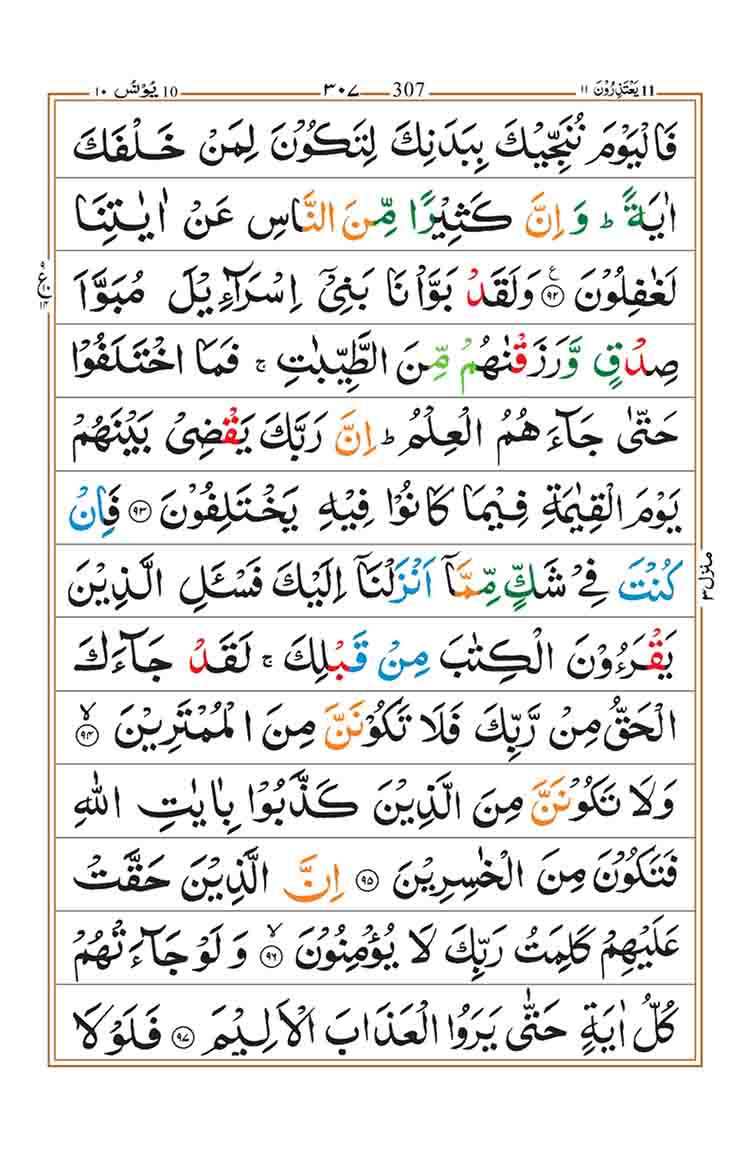 11 يَعْتَذِرُوْنَ ١١ 307 ٣٠٧ 10 يُوْنُس ١٠
فَالْيَوْمَ نُنَجِّيْكَ بِبَدَنِكَ لِتَكُوْنَ لِمَنْ خَلْفَكَ
اٰيَةً ؕ وَ اِنَّ كَثِيْرًا مِّنَ النَّاسِ عَنْ اٰيٰتِنَا
لَغٰفِلُوْنَ ۝٩٢ ع وَلَقَدْ بَوَّاْنَا بَنِيْۤ اِسْرَآءِيْلَ مُبَوَّاَ
صِدْقٍ وَّرَزَقْنٰهُمْ مِّنَ الطَّيِّبٰتِ ۚ فَمَا اخْتَلَفُوْا
حَتّٰى جَآءَهُمُ الْعِلْمُ ؕ اِنَّ رَبَّكَ يَقْضِيْ بَيْنَهُمْ
يَوْمَ الْقِيٰمَةِ فِيْمَا كَانُوْا فِيْهِ يَخْتَلِفُوْنَ ۝٩٣ فَاِنْ
كُنْتَ فِيْ شَكٍّ مِّمَّاۤ اَنْزَلْنَاۤ اِلَيْكَ فَسْـَٔلِ الَّذِيْنَ
يَقْرَءُوْنَ الْكِتٰبَ مِنْ قَبْلِكَ ۚ لَقَدْ جَآءَكَ
الْحَقُّ مِنْ رَّبِّكَ فَلَا تَكُوْنَنَّ مِنَ الْمُمْتَرِيْنَ ۙ۝٩٤
وَلَا تَكُوْنَنَّ مِنَ الَّذِيْنَ كَذَّبُوْا بِاٰيٰتِ اللّٰهِ
فَتَكُوْنَ مِنَ الْخٰسِرِيْنَ ۝٩٥ اِنَّ الَّذِيْنَ حَقَّتْ
عَلَيْهِمْ كَلِمَتُ رَبِّكَ لَا يُؤْمِنُوْنَ ۙ۝٩٦ وَ لَوْ جَآءَتْهُمْ
كُلُّ اٰيَةٍ حَتّٰى يَرَوُا الْعَذَابَ الْاَلِيْمَ ۝٩٧ فَلَوْلَا
منزل ٣